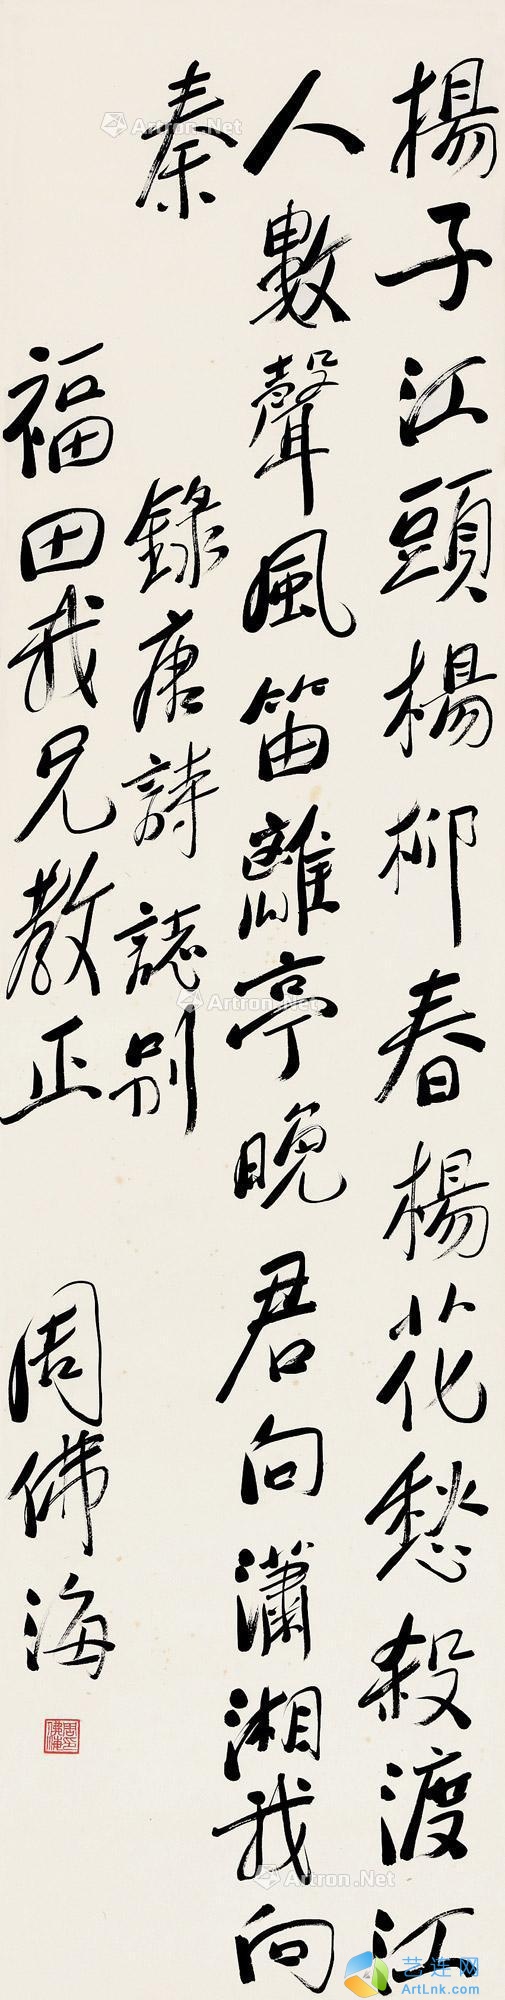 揚子江頭楊柳春楊花愁殺渡江
人數聲風笛離亭晚君向瀟湘我向
秦
錄唐詩誌別
福田我兄教正
周佛海
Artron.Net
Artron.Net
Artron.Net
Artron.Net
艺连网
ArtLink.com